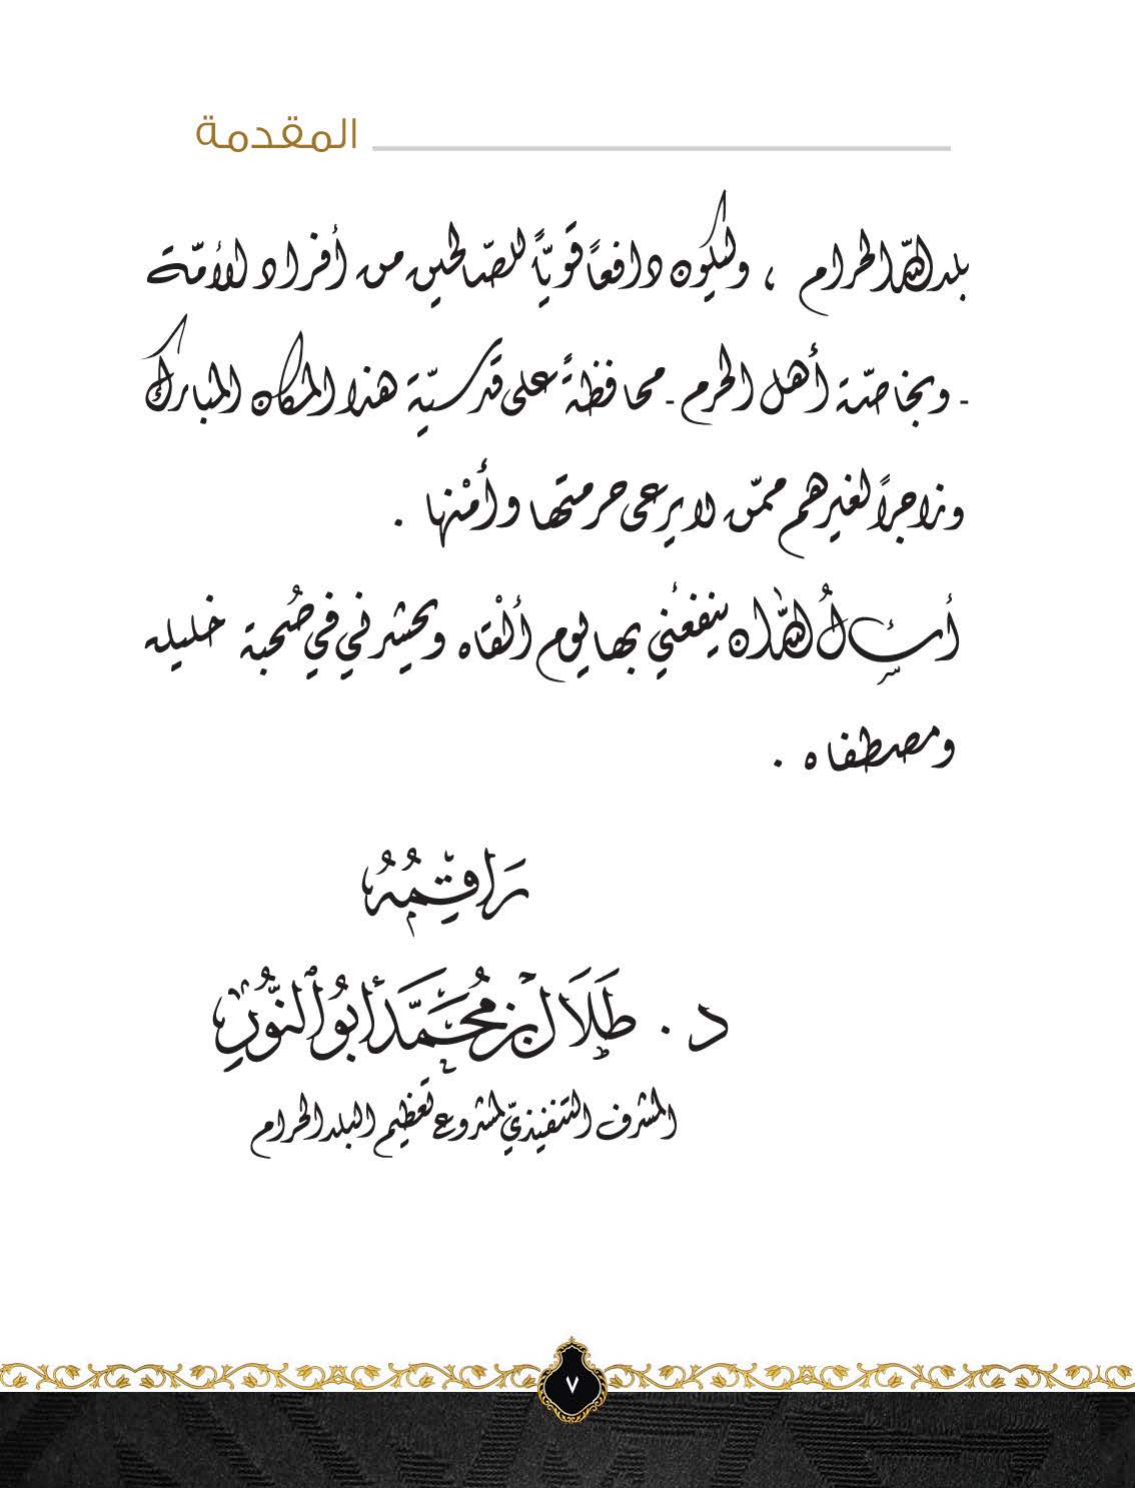 المقدمة
بلد الله الحرام ، وليكون دافعاً قويّاً للصّالحين من أفراد الأمّة
- وبخاصّة أهل الحرم - محافظةً على قدسيّة هذا المكان المبارك
وزاجراً لغيرهم ممّن لا يرعى حرمتها وأمْنها .
أسألُ الله أن ينفعني بها يوم ألْقاه ويحشرني في صُحبة خليله
ومصطفاه .
رَاقِمُهُ
د . طَلَال بْن مُحَمَّد أَبُو النُّور
المشرف التنفيذيّ لمشروع تعظيم البلد الحرام
٧